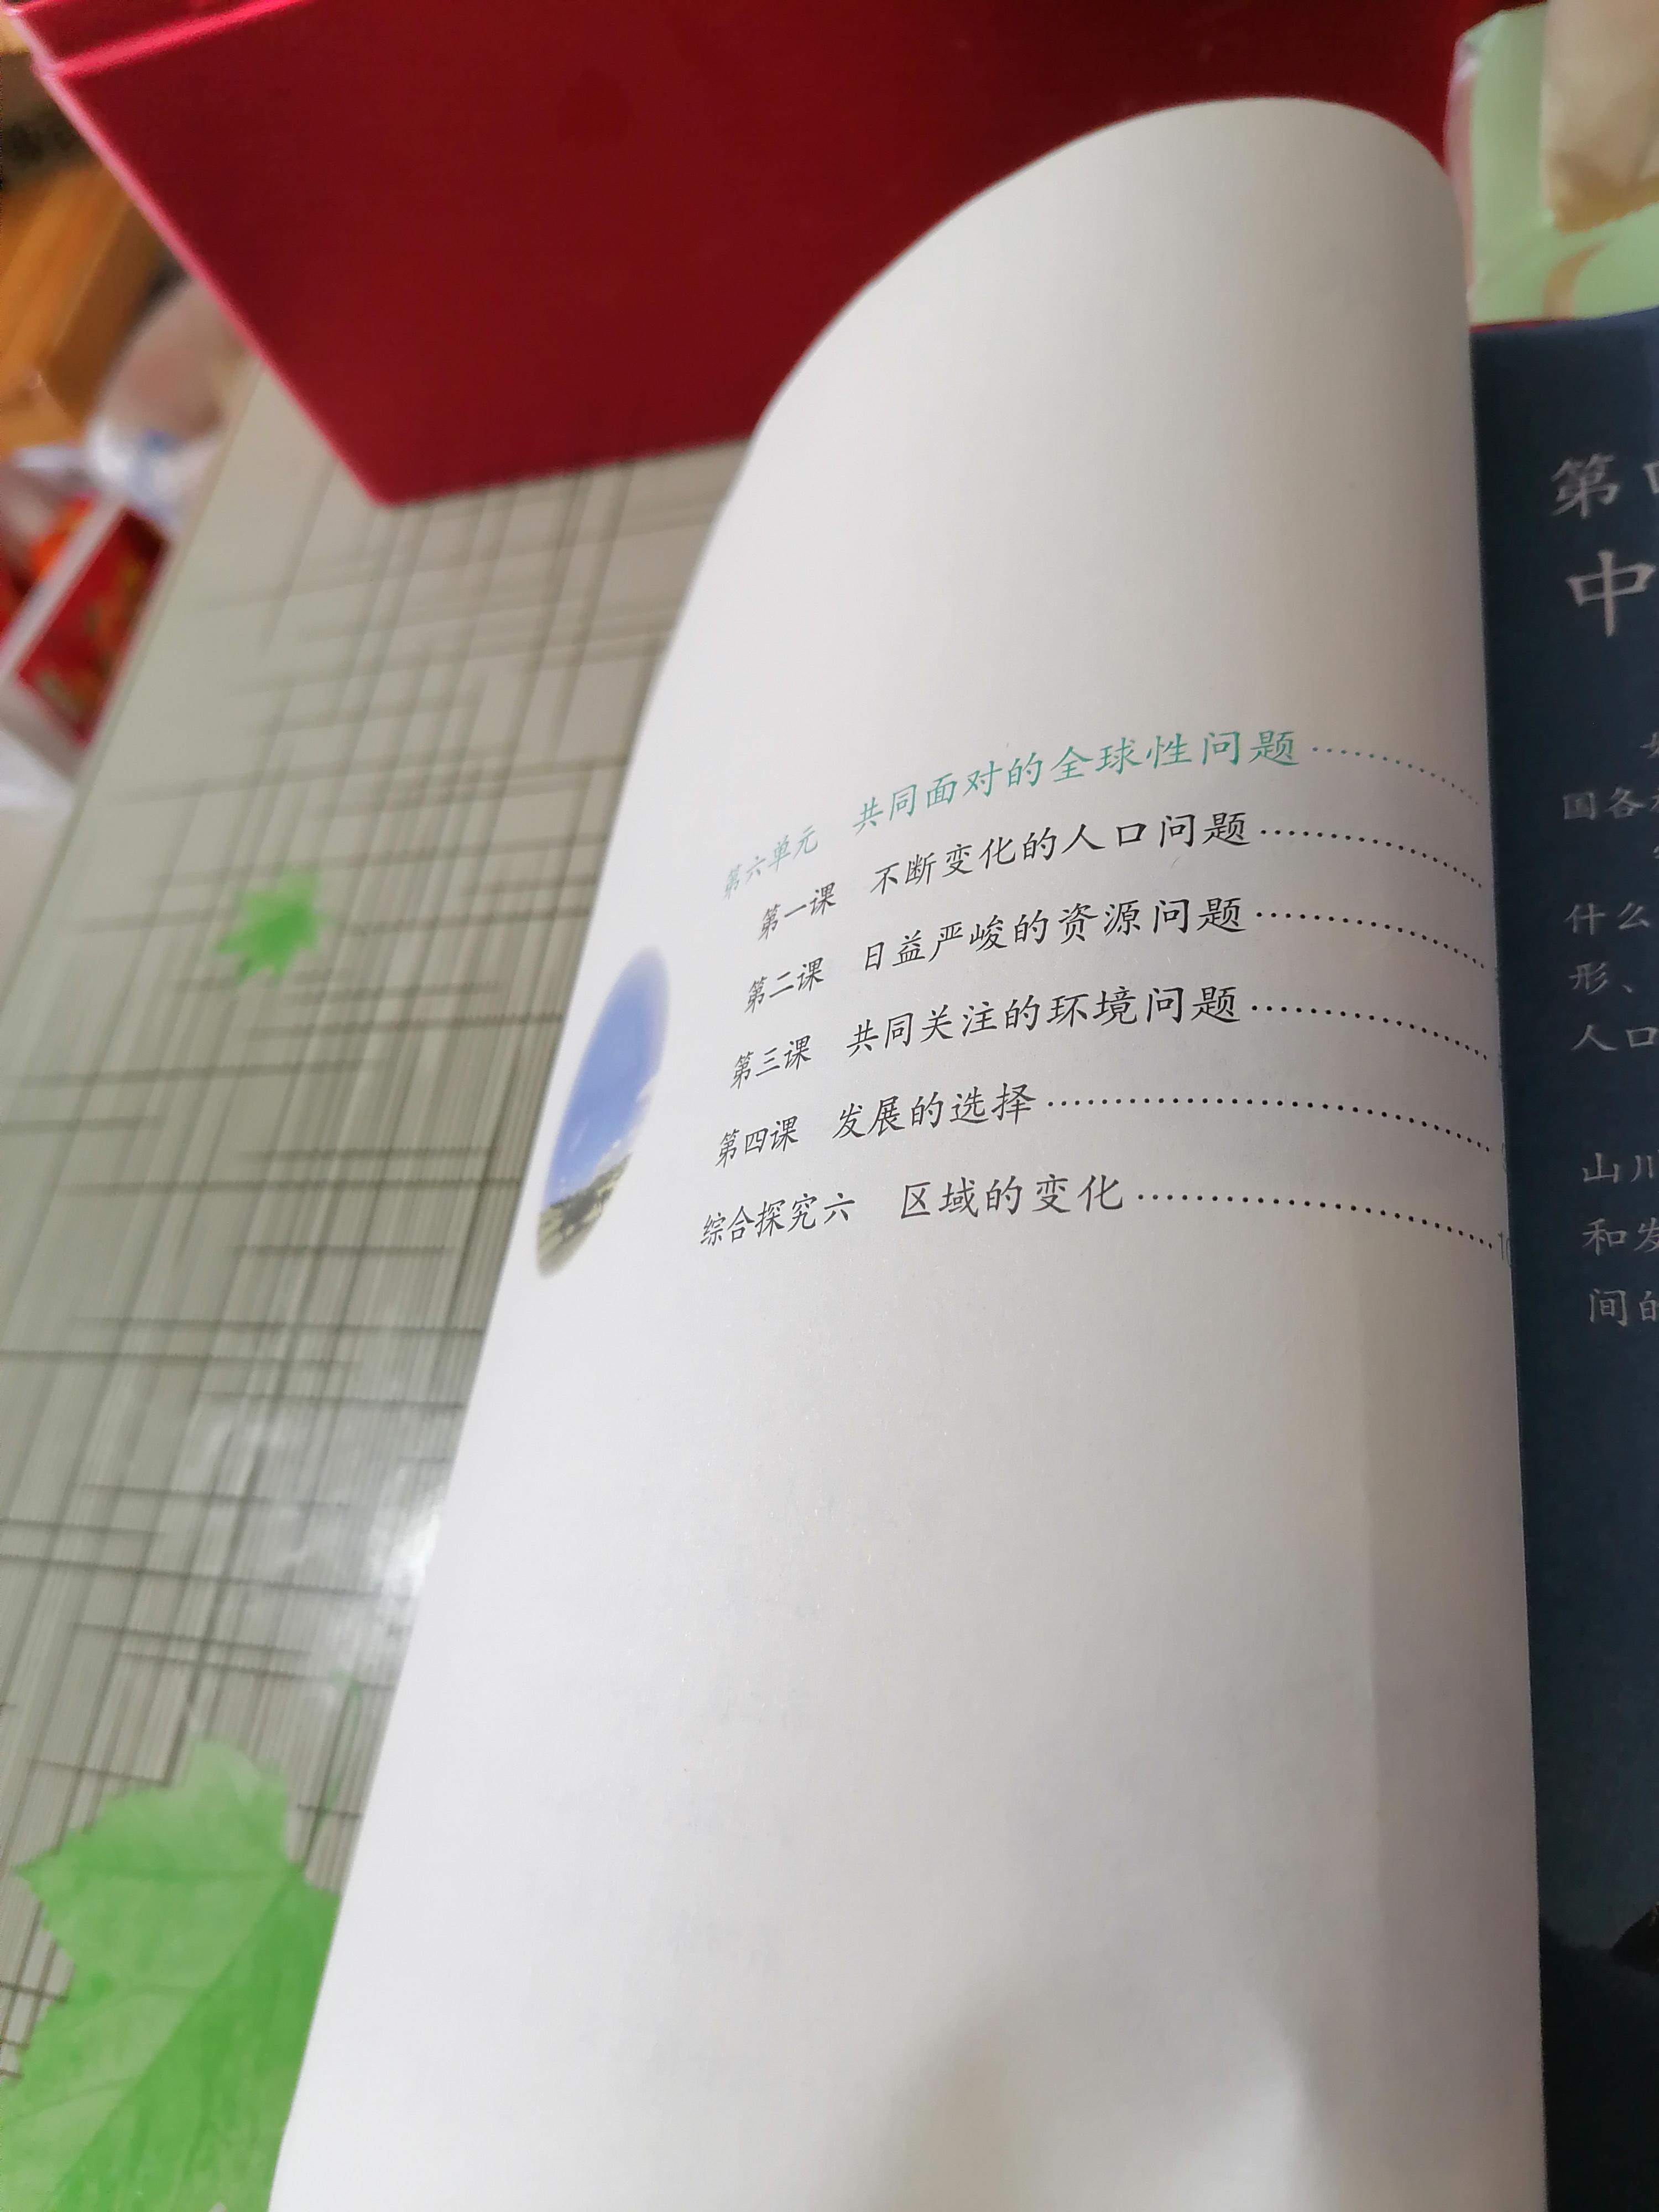 第六单元 共同面对的全球性问题
第一课 不断变化的人口问题
第二课 日益严峻的资源问题
第三课 共同关注的环境问题
第四课 发展的选择
综合探究六 区域的变化
第
中
国各
什么
形、
人口
山川
和发
间的